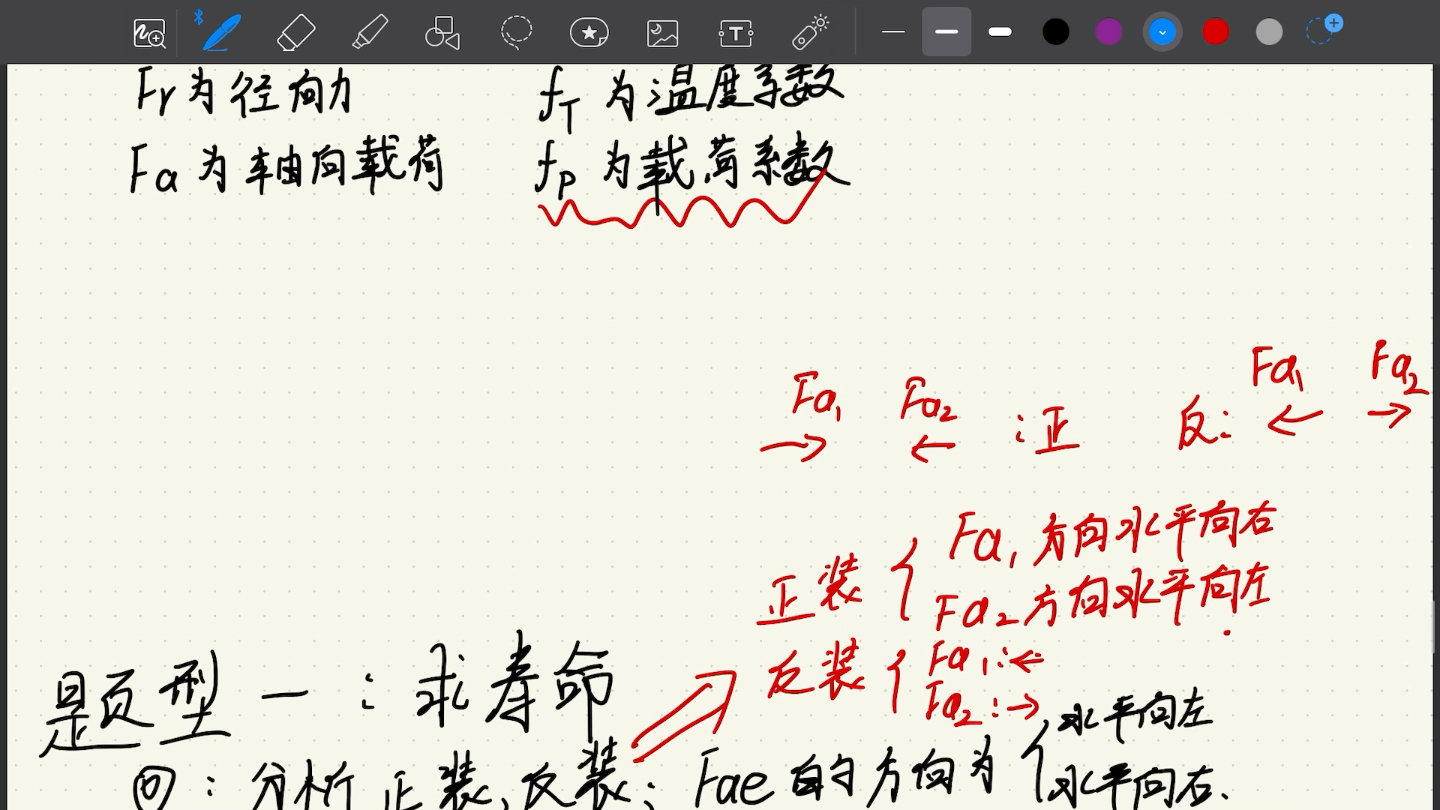 Fr为径向力
fT为温度系数
Fa为轴向载荷
fP为载荷系数
Fa1 Fa2 :正
反: Fa1 Fa2
→ ←
← →
正装{ Fa1方向水平向右
Fa2方向水平向左
反装{ Fa1:←
Fa2:→
题型一:求寿命
①:分析正装,反装; Fae的方向为{ 水平向左
水平向右.